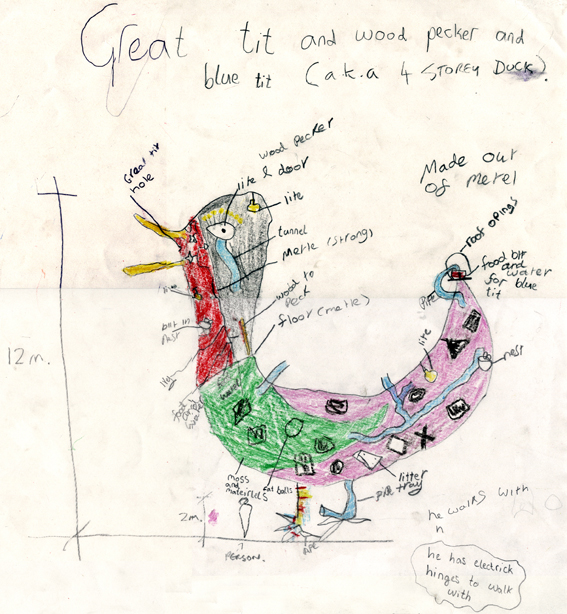 Great tit and wood pecker and
blue tit (a.k.a 4 STOREY DUCK).
Great tit
hole
wood pecker
lite & door
lite
tunnel
Metle (strong)
wood to
peck
floor (metle)
Made out
of metel
roof opings
food bit
and
water
for blue
tit
PiPe
lite
nest
12m.
bit in
Hay
moss
and
materiels
fat balls
litter
pick tray
2m.
PERSON.
he walks with
h
he has electrick
hinges to walk
with